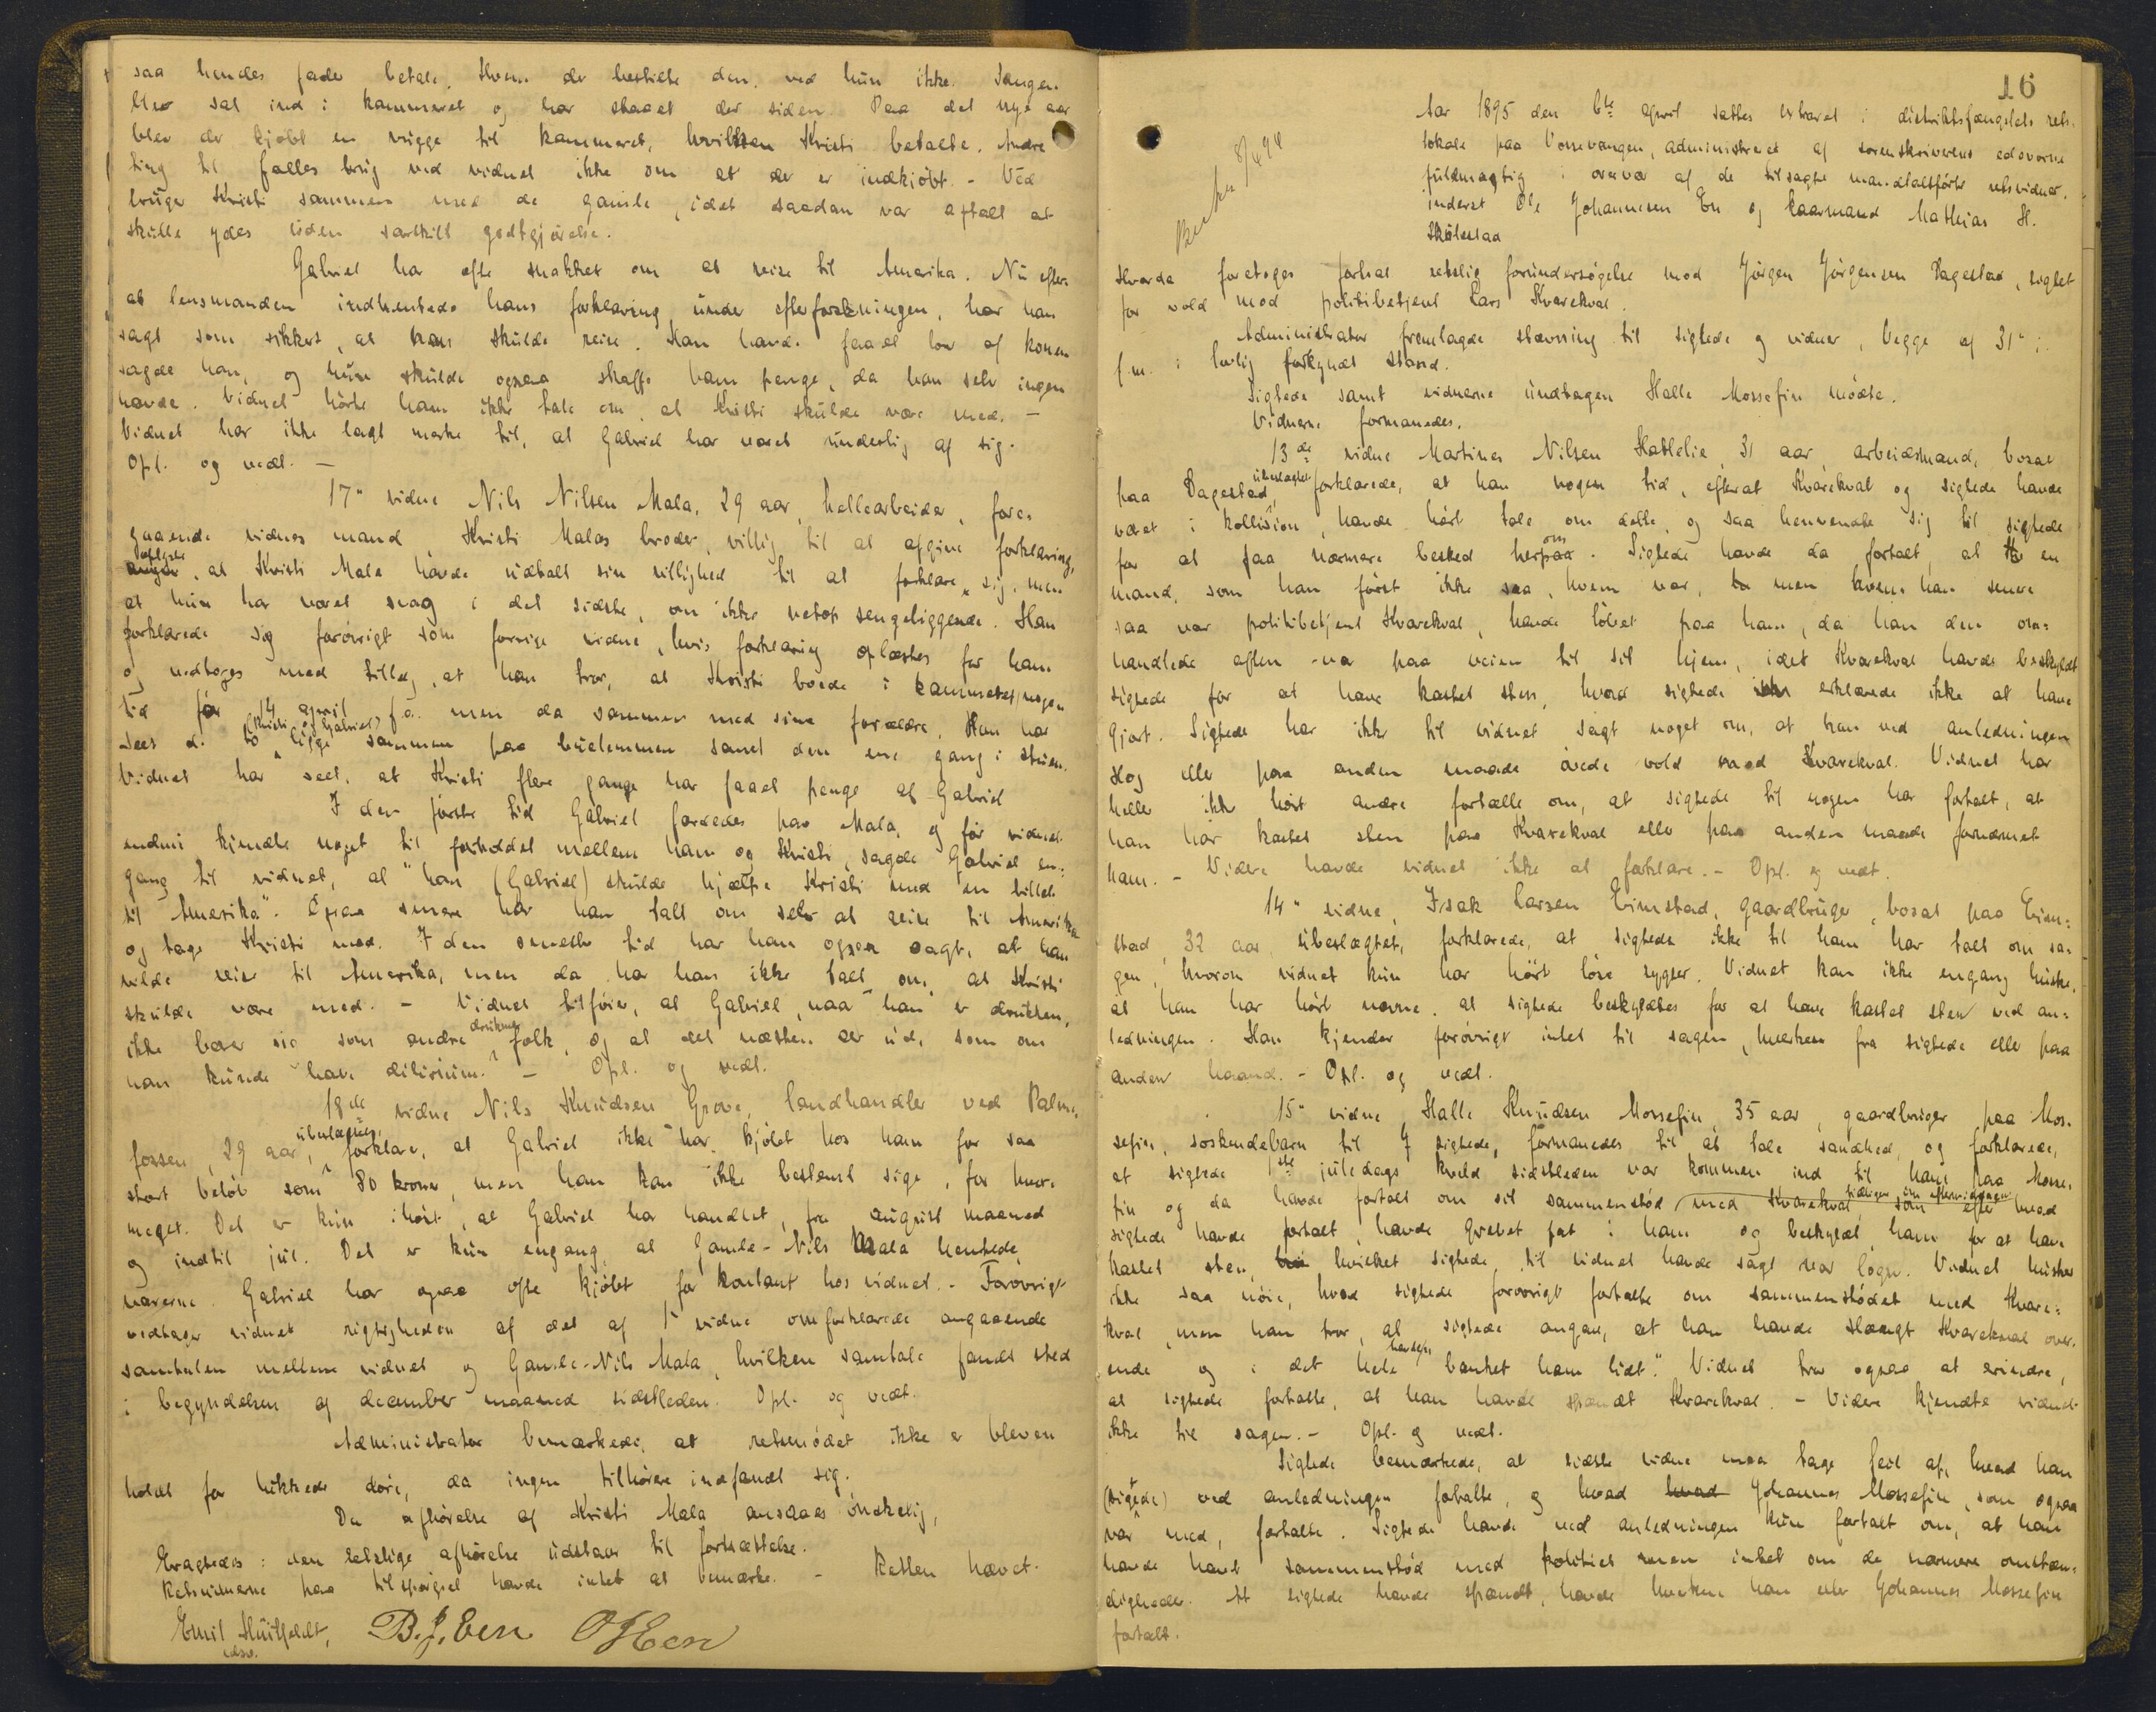 saa hendes fader betale. Hvem der bestilte den, ved hun ikke. Sengen
blev sat ind i kammeret og har staaet der siden. Paa det nye aar
blev der kjøbt en vugge til kammeret, hvilken Kristi betalte. Andre
ting til fælles brug ved vidnet ikke om at der er indkjøbt. - Ved
bruger Kristi sammen med de gamle, idet saadan var aftalt at
skulle ydes uden særskilt godtgjørelse.
Gabriel har ofte snakket om at reise til Amerika. Nu efter
at lensmanden indhentede hans forklaring under efterforskningen, har han
sagt som sikkert, at han skulde reise. Han havde faaet lov af konen
sagde han, og hun skulde ogsaa skaffe ham penge, da han selv ingen
havde. Vidnet hørte ham ikke tale om, at Kristi skulde være med. -
Vidnet har ikke lagt mærke til, at Gabriel har været underlig af sig.
Opl. og vedt. -
17" vidne Nils Nilsen Mala, 29 aar, hellearbeider, fore-
gaaende vidnes mand, Kristi Malas broder, villig til at afgive forklaring,
oplyste
at Kristi Mala havde udtalt sin villighed til at forklare sig, men
at hun har været svag i det sidste, om ikke netop sengeliggende. Han
forklarede sig forøvrigt som forrige vidne, hvis forklaring oplæstes for ham
og vedtoges med tillæg, at han tror, at Kristi boede i kammeret nogen
tid før 14 april f.a. men da sammen med sine forældre. Han har
(Kristi og Gabriel)
seet de to ligge sammen paa buelemmen samt den ene gang i stuen.
Vidnet har seet, at Kristi flere gange har faaet penge af Gabriel
I den første tid Gabriel færdedes paa Mala, og før vidnet
endnu kjendte noget til forholdet mellem ham og Kristi, sagde Gabriel en-
gang til vidnet, at "han (Gabriel) skulde hjælpe Kristi med en billet
til Amerika". Ogsaa senere har han talt om selv at reise til Amerika
og tage Kristi med. I den seneste tid har han ogsaa sagt, at han
vilde reise til Amerika, men da har han ikke talt om, at Kristi
skulde være med. - Vidnet tilføier, at Gabriel, naar han er drukken,
drukne
ikke bærer sig som andre folk, og at det næsten ser ud, som om
han kunde "have dilirium." - Opl. og vedt.
18de vidne Nils Knudsen Grove, landhandler ved Palme-
ubeslægtet,
fossen, 29 aar, forklare, at Gabriel ikke har kjøbt hos ham for saa
stort beløb som 80 kroner, men han kan ikke bestemt sige, for hvor
meget. Det er kun i høst, at Gabriel har handlet, fra august maaned
og indtil jul. Det er kun engang, at Gamle-Nils Mala hentede
varerne. Gabriel har ogsaa ofte kjøbt for kontant hos vidnet. - Forøvrigt
vedtager vidnet rigtigheden af det af 1" vidne omforklarede angaaende
samtalen mellem vidnet og Gamle-Nils Mala, hvilken samtale fandt sted
i begyndelsen af december maaned sidstleden. Opl. og vedt.
Administrator bemærkede, at retsmødet ikke er bleven
holdt for lukkede døre, da ingen tilhørere indfandt sig.
Da afhørelse af Kristi Mala ansaaes ønskelig,
Eragtedes: den retslige afhørelse udstaar til fortsættelse.
Retsvidnerne paa tilspørgsel havde intet at bemærke. - Retten hævet.
Emil Huitfeldt, B. J. Een O J Een
edsv.
16
Aar 1895 den 6te april sattes extraret i distriktsfængslets rets-
lokale paa Vossevangen, administreret af sorenskriverens edsvorne
fuldmægtig i overvær af de tilsagte mandtalsførte retsvidner,
inderst Ole Johannesen En og kaarmand Mathias H.
Skulestad
Hvorda foretoges fortsat retslig forundersøgelse mod Jørgen Jørgensen Dagestad, sigtet
for vold mod politibetjent Lars Kvarekval.
Administrator fremlagde stævning til sigtede og vidner, begge af 31" i
f.m. i lovlig forkyndt stand.
Sigtede samt vidnerne undtagen Halle Mossefin mødte.
Vidnerne formanedes.
13de vidne Martines Nilsen Hatlelie, 31 aar, arbeidsmand, bosat
ubeslægtet
paa Dagestad, forklarede, at han nogen tid, efterat Kvarekval og sigtede havde
været i kollision, havde hørt tale om dette, og saa henvendte sig til sigtede
om
for at faa nærmere besked herpaa. Sigtede havde da fortalt, at en
mand, som han først ikke saa, hvem var, men hvem han senere
saa var politibetjent Kvarekval, havde løbet paa ham, da han den om-
handlede aften var paa veien til sit hjem, idet Kvarekval havde beskyldt
sigtede for at have kastet sten, hvad sigtede erklærede ikke at have
gjort. Sigtede har ikke til vidnet sagt noget om, at han ved anledningen
slog eller paa anden maade øvede vold mod Kvarekval. Vidnet har
heller ikke hørt andre fortælle om, at sigtede til nogen har fortalt, at
han har kastet sten paa Kvarekval eller paa anden maade fornærmet
ham. - Videre havde vidnet ikke at forklare. - Opl. og vedt.
14" vidne, Isak Larsen Eimstad, gaardbruger, bosat paa Eim-
stad, 32 aar, ubeslægtet, forklarede, at sigtede ikke til ham har talt om sa-
gen, hvorom vidnet kun har hørt løse rygter. Vidnet kan ikke engang huske,
at han har hørt nævne, at sigtede beskyldtes for at have kastet sten ved an-
ledningen. Han kjender forøvrigt intet til sagen, hverken fra sigtede eller paa
anden haand. - Opl. og vedt.
15" vidne, Halle Knudsen Mossefin, 35 aar, gaardbruger paa Mos-
sefin, søskendebarn til sigtede, formanedes til at tale sandhed, og forklarede,
at sigtede 1ste juledags kveld sidstleden var kommen ind til ham paa Mosse-
tidligere om eftermiddagen
fin og da havde fortalt om sit sammenstød med Kvarekval, som efter hvad
sigtede havde fortalt, havde grebet fat i ham og beskyldt ham for at have
kastet sten, hvilket sigtede til vidnet havde sagt var løgn. Vidnet husker
ikke saa nøie, hvad sigtede forøvrigt fortalte om sammenstødet med Kvare-
kval, men han tror, at sigtede angav, at han havde slængt Kvarekval over-
ende og i det hele banket ham lidt." Vidnet tror ogsaa at erindre,
at sigtede fortalte, at han havde spændt Kvarekval. - Videre kjendte vidnet
ikke til sagen. - Opl. og vedt.
Sigtede bemærkede, at sidste vidne maa tage feil af, hvad han
(sigtede) ved anledningen fortalte, og hvad hvad Johannes Mossefin, som ogsaa
var med, fortalte. Sigtede havde ved anledningen kun fortalt om, at han
havde havt sammenstød med politiet men intet om de nærmere omstæn-
digheder. At sigtede havde spændt, havde hverken han eller Johannes Mossefin
fortalt.